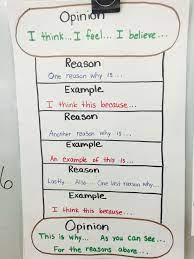 Opinion
I think... I feel... I believe...
Reason
One reason why is...
Example
I think this because...
Reason
Another reason why is...
Example
An example of this is...
Reason
Lastly... Also... One last reason why...
Example
I think this because...
Opinion
This is why... As you can see...
For the reasons above...